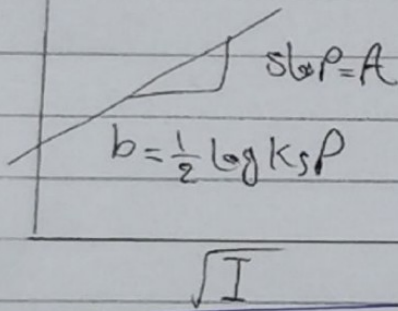 slop=A
b=½ log KsP
√I